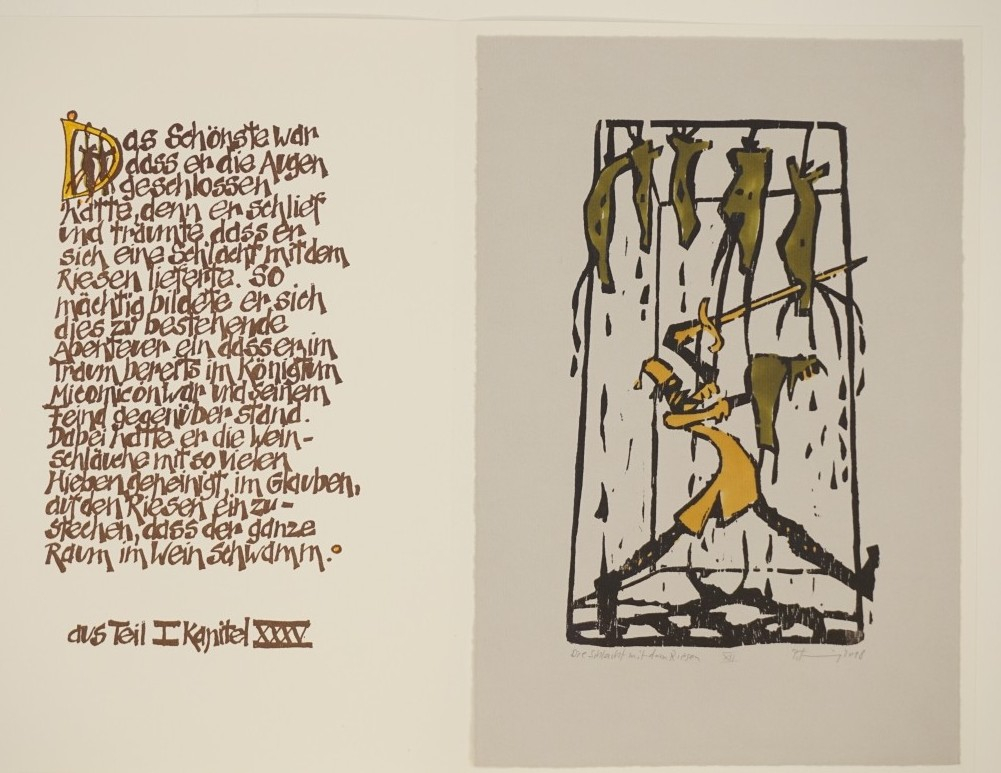 Das Schönste war
dass er die Augen
geschlossen
hatte, denn er schlief
und träumte, dass er
sich eine Schlacht mit dem
Riesen lieferte. So
mächtig bildete er sich
dies zu bestehende
Abenteuer ein dass er im
Traum bereits im Königtum
Micomicon war und seinem
Feind gegenüber stand.
Dabei hatte er die Wein-
schläuche mit so vielen
Hieben gepeinigt, im Glauben,
auf den Riesen einzu-
stechen, dass der ganze
Raum im Wein schwamm.
aus Teil I Kapitel XXXV
Die Schlacht mit dem Riesen